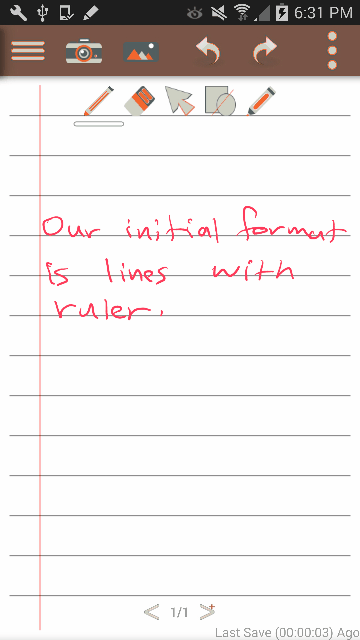 6:31 PM
Our initial format
is lines with
ruler.
1/1
Last Save (00:00:03) Ago